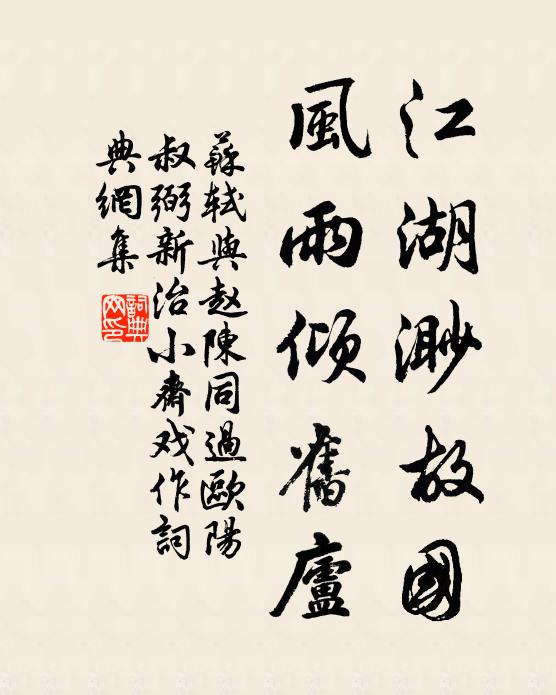 江湖渺故國
風雨傾舊廬
蘇軾與赵陳同過歐陽
叔弼新治小齋戏作詞
典網集
詞典
网印